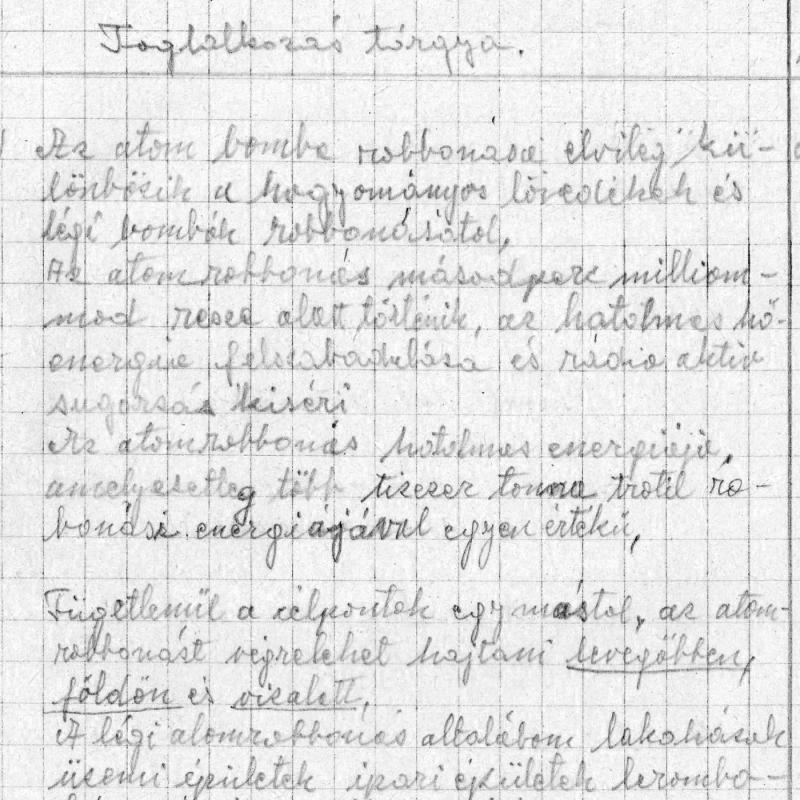 Foglalkozás tárgya.
Az atom bomba robbonása elvileg kü-
lönbözik a hogyományos lövedékek és
légi bombák robbonásátol,
Az atomrobbonás másodperc milliom-
mod resze alatt történik, az hatolmas hő-
energia felszabadulása és rádio aktiv
sugorzás kiséri
Az atomrobbonás hotolmas energiája,
amelyesetleg több tizezer tonna trotil ro-
bonási energiájával egyen értékü,
Fügetlenül a célpontok egymástol, az atom-
robbonást végrelehet hajtani levegőbben,
földön és vizalatt,
A légi atomrobbonás altalábom lakoházok
üzemi épületek ipari épületek leromba-